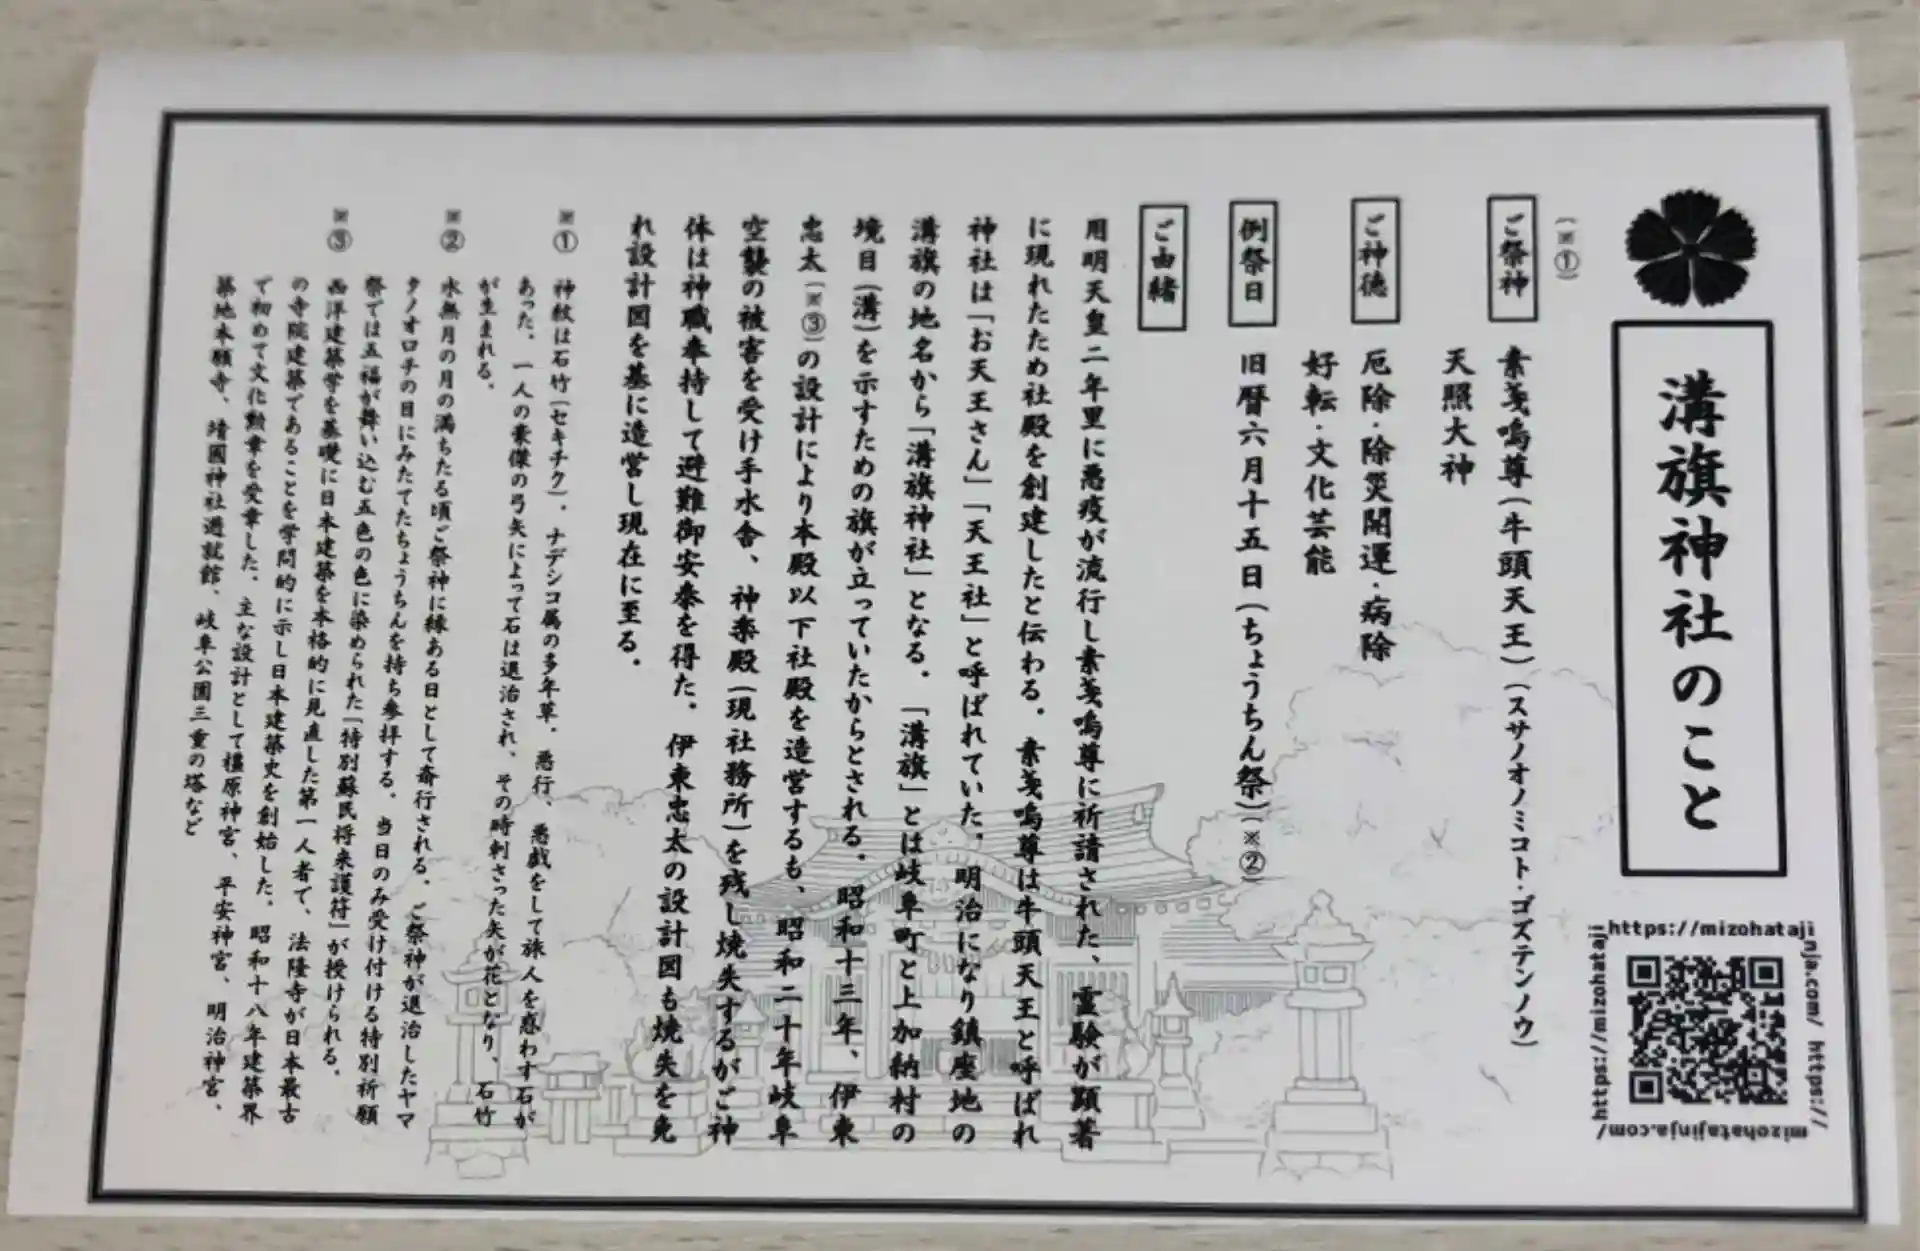 溝旗神社のこと
https://mizohatajinja.com/ https://mizohatajinja.com/ https://mizohataji
(※①)
ご祭神
素戔嗚尊(牛頭天王)(スサノオノミコト・ゴズテンノウ)
天照大神
ご神徳
厄除・除災開運・病除
好転・文化芸能
例祭日
旧暦六月十五日(ちょうちん祭)(※②)
ご由緒
用明天皇二年里に悪疫が流行し素戔嗚尊に祈請された、霊験が顕著
に現れたため社殿を創建したと伝わる。素戔嗚尊は牛頭天王と呼ばれ
神社は「お天王さん」「天王社」と呼ばれていた。明治になり鎮座地の
溝旗の地名から「溝旗神社」となる。「溝旗」とは岐阜町と上加納村の
境目(溝)を示すための旗が立っていたからとされる。昭和十三年、伊東
忠太(※③)の設計により本殿以下社殿を造営するも、昭和二十年岐阜
空襲の被害を受け手水舎、神楽殿(現社務所)を残し焼失するがご神
体は神職奉持して避難御安泰を得た。伊東忠太の設計図も焼失を免
れ設計図を基に造営し現在に至る。
※① 神紋は石竹(セキチク)。ナデシコ属の多年草。悪行、悪戯をして旅人を惑わす石が
あった。一人の豪傑の弓矢によって石は退治され、その時刺さった矢が花となり、石竹
が生まれる。
※② 水無月の月の満ちたる頃ご祭神に縁ある日として斎行される。ご祭神が退治したヤマ
タノオロチの目にみたてたちょうちんを持ち参拝する。当日のみ受け付ける特別祈願
祭では五福が舞い込む五色の色に染められた「特別蘇民将来護符」が授けられる。
※③ 西洋建築学を基礎に日本建築を本格的に見直した第一人者で、法隆寺が日本最古
の寺院建築であることを学問的に示し日本建築史を創始した。昭和十八年建築界
で初めて文化勲章を受章した。主な設計として橿原神宮、平安神宮、明治神宮、
築地本願寺、靖國神社遊就館、岐阜公園三重の塔など